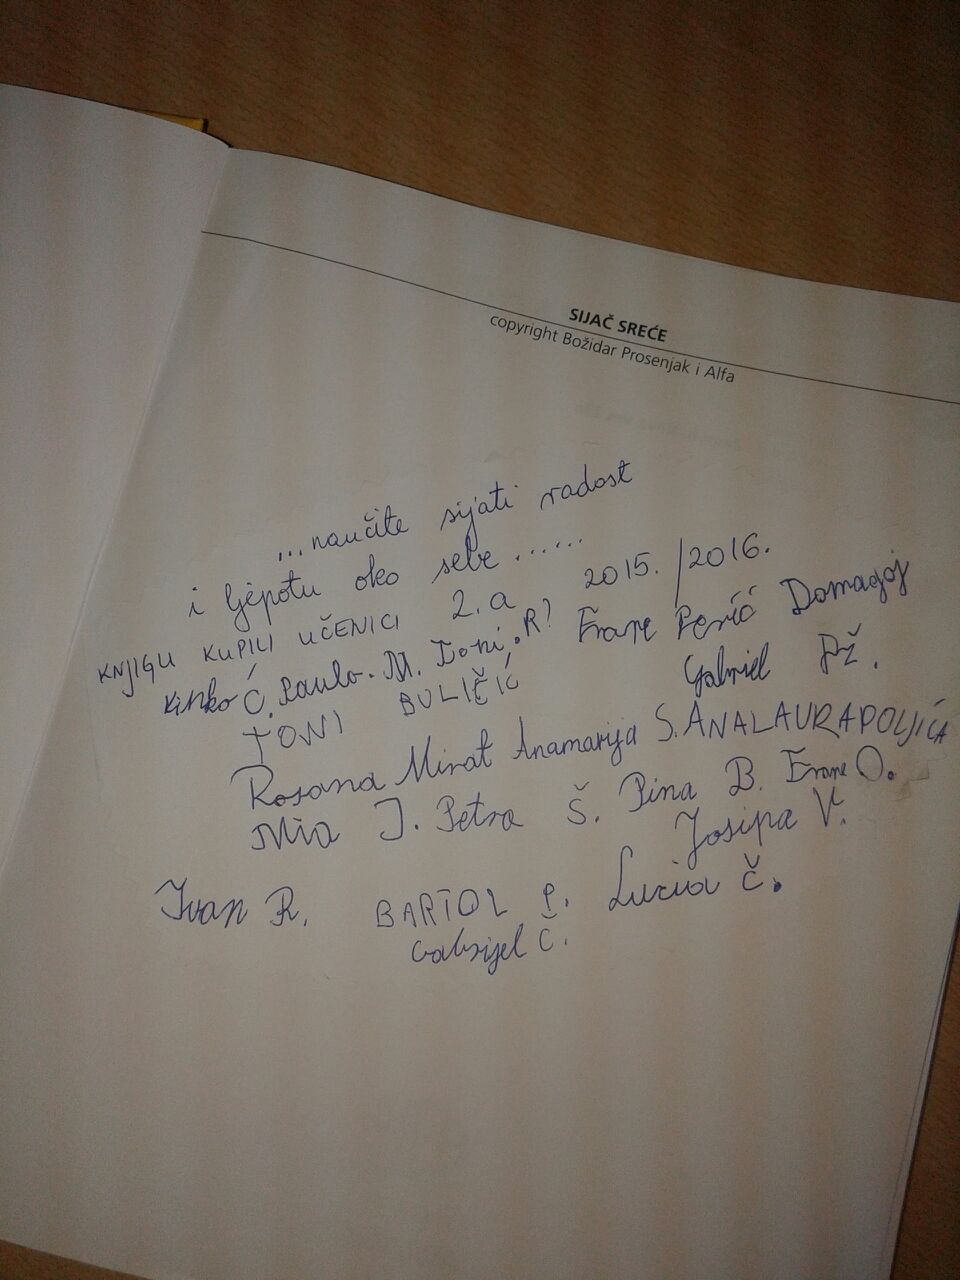 SIJAČ SREĆE
copyright Božidar Prosenjak i Alfa
...naučite sijati radost
i ljepotu oko sebe ......
KNJIGU KUPILI UČENICI 2.a 2015./2016.
Vinko Ć. Paulo. M. Toni.R? Frane Perić Domagoj
TONI BULIČIĆ Gabriel Pž.
Rosana Minat Anamarija S. ANALAURAPOLJIĆA
Mia J. Petra Š. Pina B. Frane O.
Josipa V.
Ivan R. BARTOL P. Lucia Č.
Gabrijel Č.